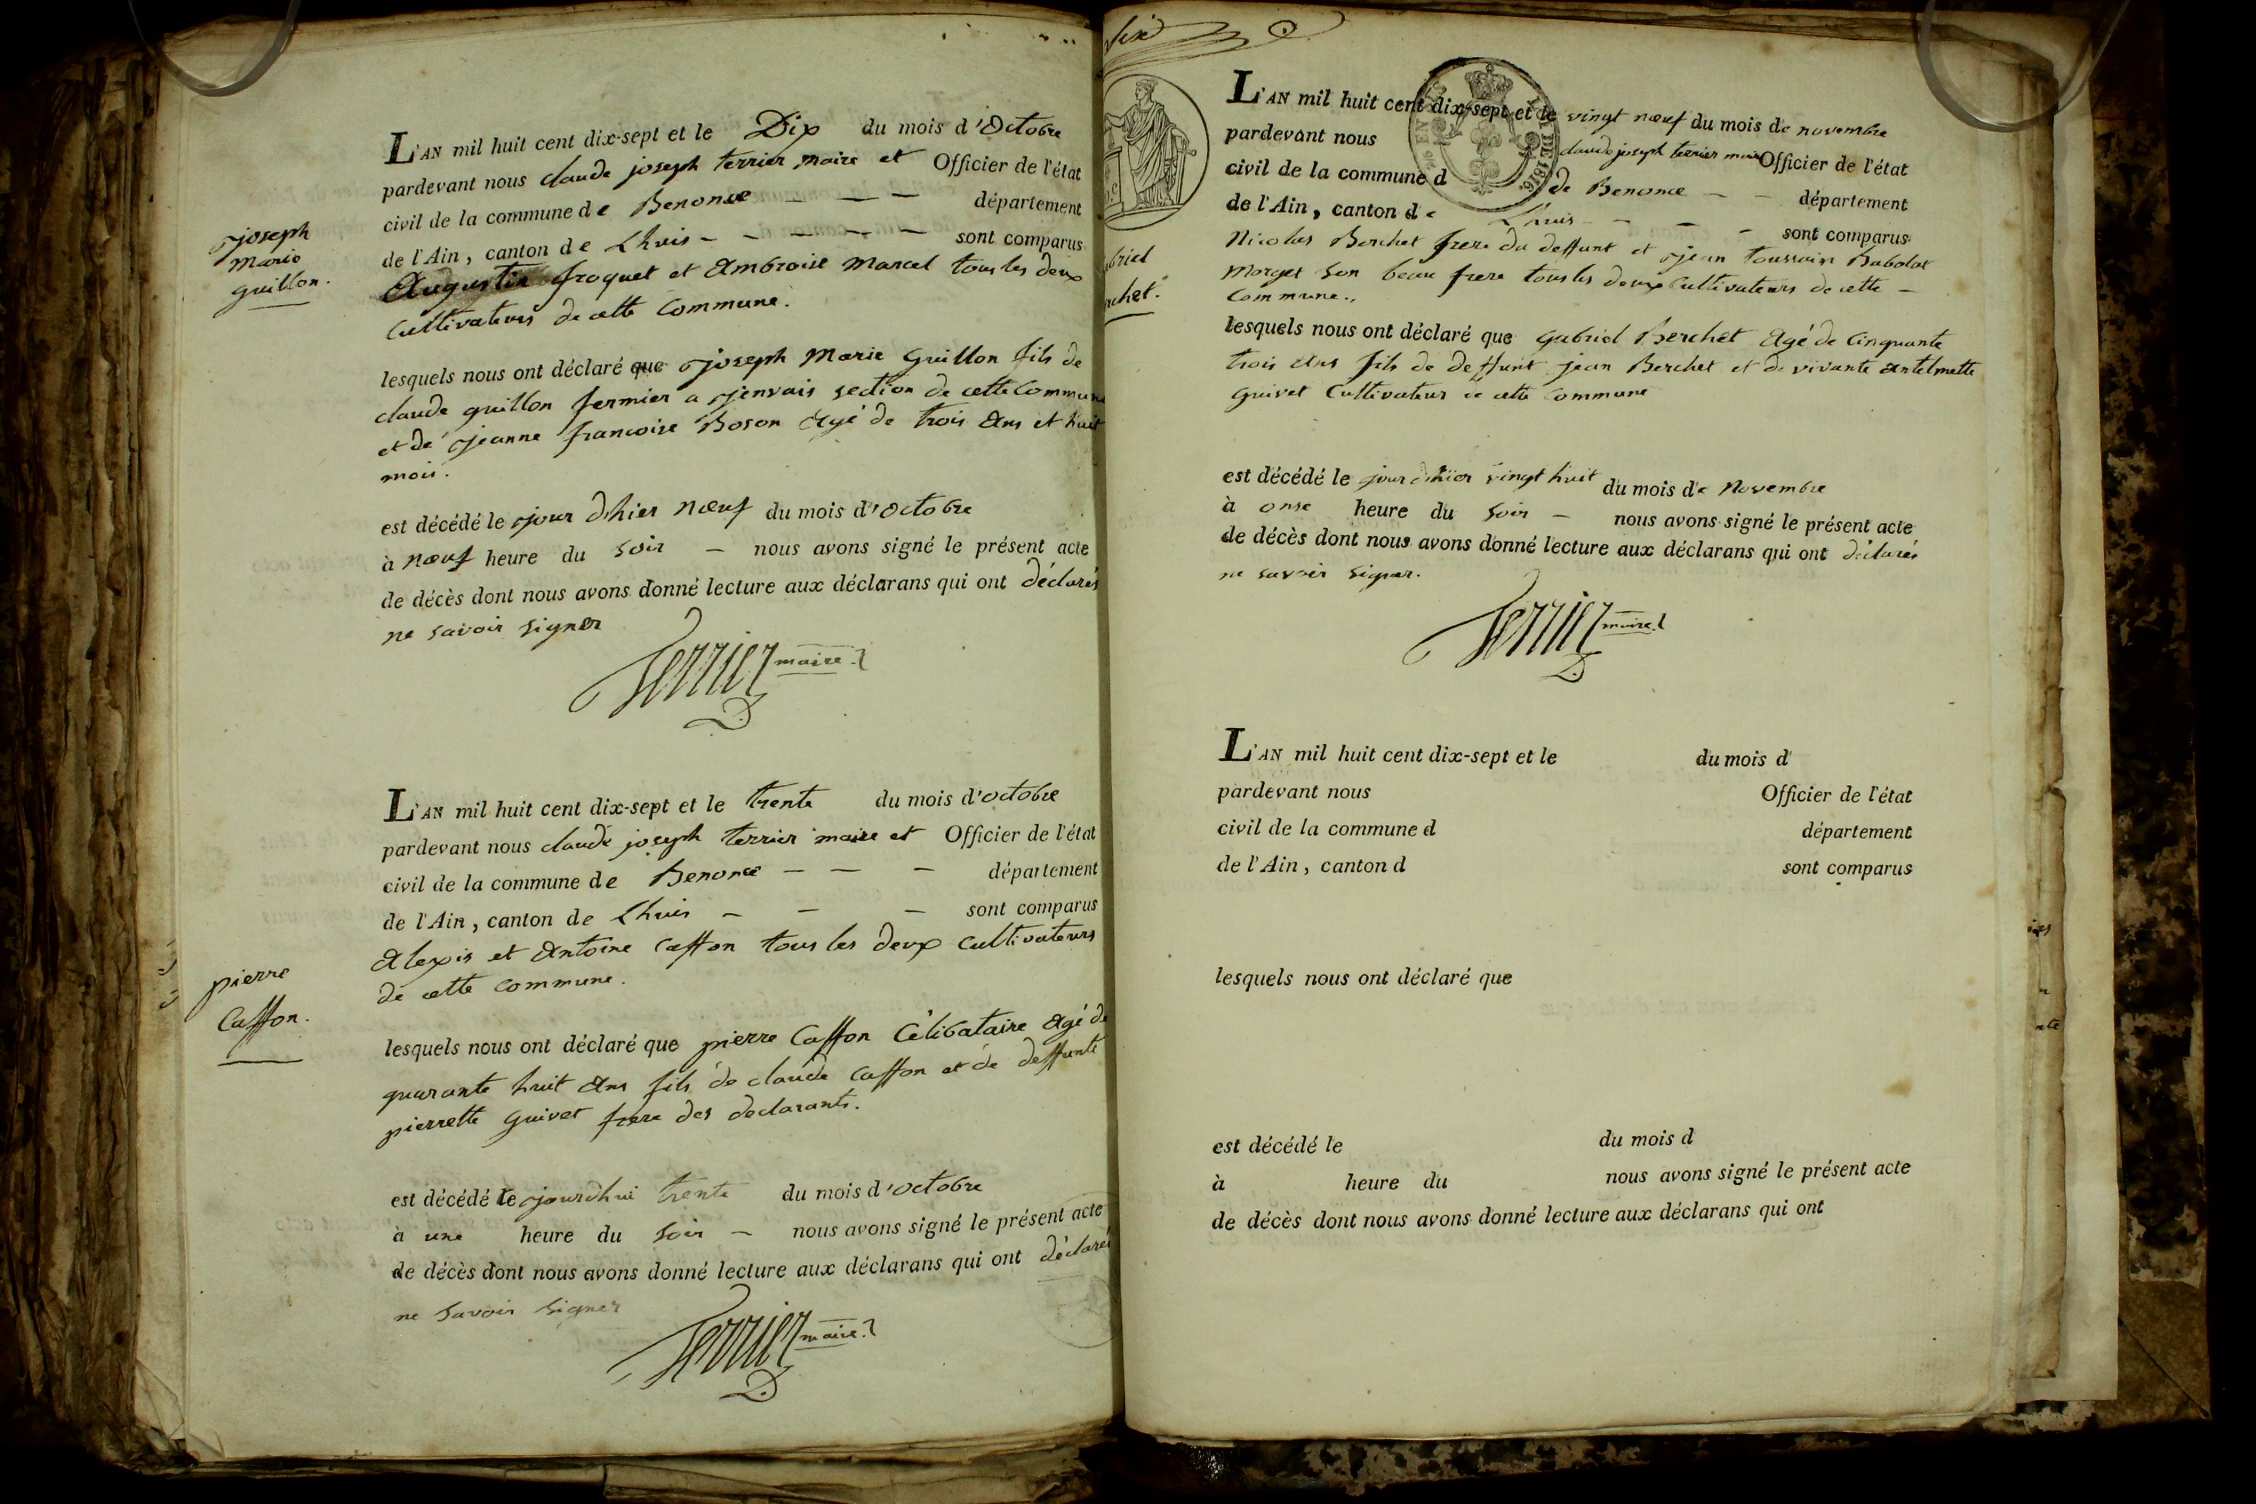 L'AN mil huit cent dix-sept et le Dix du mois d'Octobre
pardevant nous claude joseph terrier maire et Officier de l'état
civil de la commune de Benonce — — — département
de l'Ain, canton de Lhuis — — — — — sont comparus
Augustin froquet et Ambroise Marcel tous les deux
Cultivateurs de cette Commune.
joseph
Marie
guillon.
lesquels nous ont déclaré que joseph Marie Guillon fils de
claude guillon fermier a jenvais section de cette Commune
et de jeanne francoise Boson Agé de trois Ans et huit
mois.
est décédé le jour d'hier nœuf du mois d'Octobre
à nœuf heure du soir — nous avons signé le présent acte
de décès dont nous avons donné lecture aux déclarans qui ont déclarés
ne savoir signer
Terrier maire
L'AN mil huit cent dix-sept et le trente du mois d'octobre
pardevant nous claude joseph terrier maire et Officier de l'état
civil de la commune de Benonce — — — département
de l'Ain, canton de Lhuis — — — sont comparus
Alexis et Antoine Caffon tous les deux Cultivateurs
de cette Commune.
pierre
Caffon.
lesquels nous ont déclaré que pierre Caffon Célibataire Agé de
quarante huit Ans fils de claude Caffon et de deffunte
pierrette Guivet frere des declarants.
est décédé le jourd'hui trente du mois d'octobre
à une heure du soir — nous avons signé le présent acte
de décès dont nous avons donné lecture aux déclarans qui ont déclarés
ne savoir signer
Terrier maire
L'AN mil huit cent dix-sept et le vingt nœuf du mois de novembre
pardevant nous claude joseph terrier maire Officier de l'état
civil de la commune d de Benonce — — département
de l'Ain, canton de Lhuis — — — — sont comparus
Nicolas Berchet frere du deffunt et jean toussain Babolat
Morget son beau frere tous les deux Cultivateurs de cette —
Commune.
lesquels nous ont déclaré que gabriel Berchet Agé de Cinquante
trois Ans fils de deffunt jean Berchet et de vivante Antelmette
Guivet Cultivateur de cette Commune
est décédé le jour d'hier vingt huit du mois de Novembre
à onse heure du soir — nous avons signé le présent acte
de décès dont nous avons donné lecture aux déclarans qui ont déclarés
ne savoir signer.
Terrier maire
L'AN mil huit cent dix-sept et le du mois d
pardevant nous Officier de l'état
civil de la commune d département
de l'Ain, canton d sont comparus
lesquels nous ont déclaré que
est décédé le du mois d
à heure du nous avons signé le présent acte
de décès dont nous avons donné lecture aux déclarans qui ont